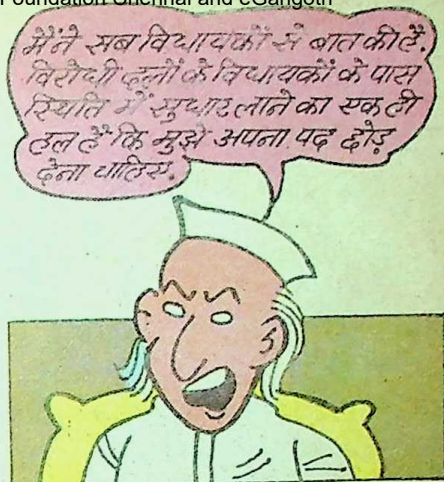 Foundation Chennai and eGangotri
मैंने सब विधायकों से बात की है.
विरोधी दलों के विधायकों के पास
स्थिति में सुधार लाने का एक ही
हल है कि मुझे अपना पद छोड़
देना चाहिए.